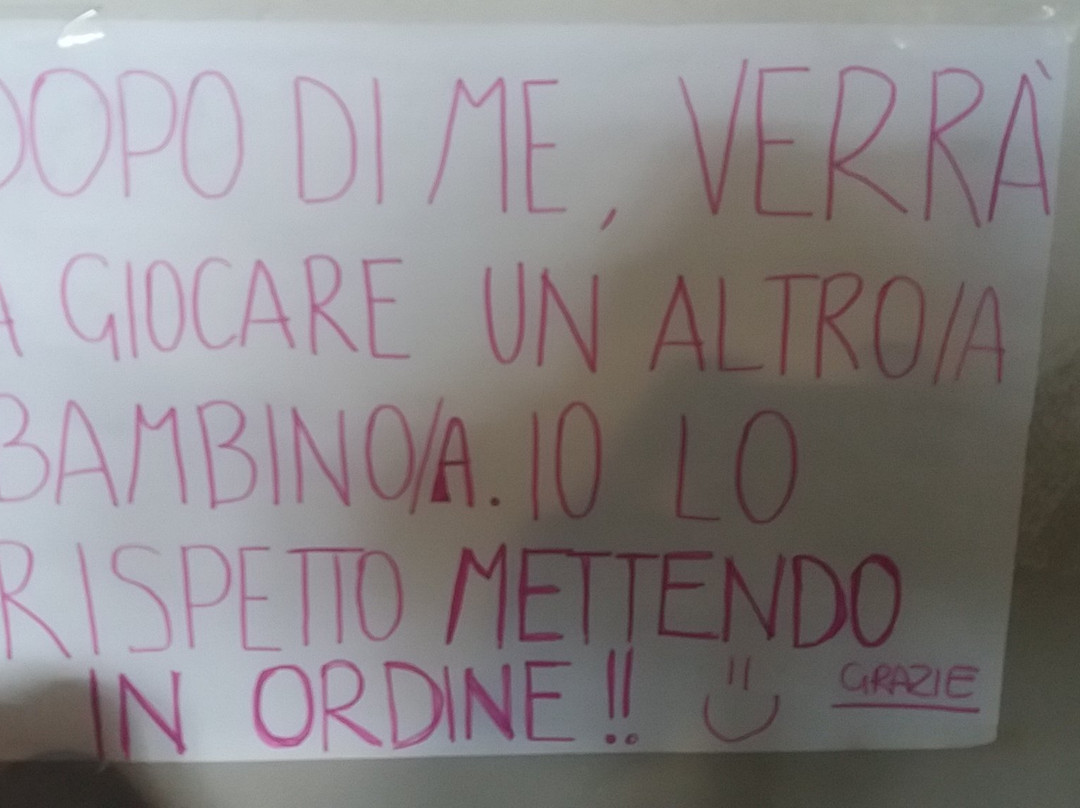 DOPO DI ME, VERRÀ
A GIOCARE UN ALTRO/A
BAMBINO/A. IO LO
RISPETTO METTENDO
IN ORDINE!! GRAZIE